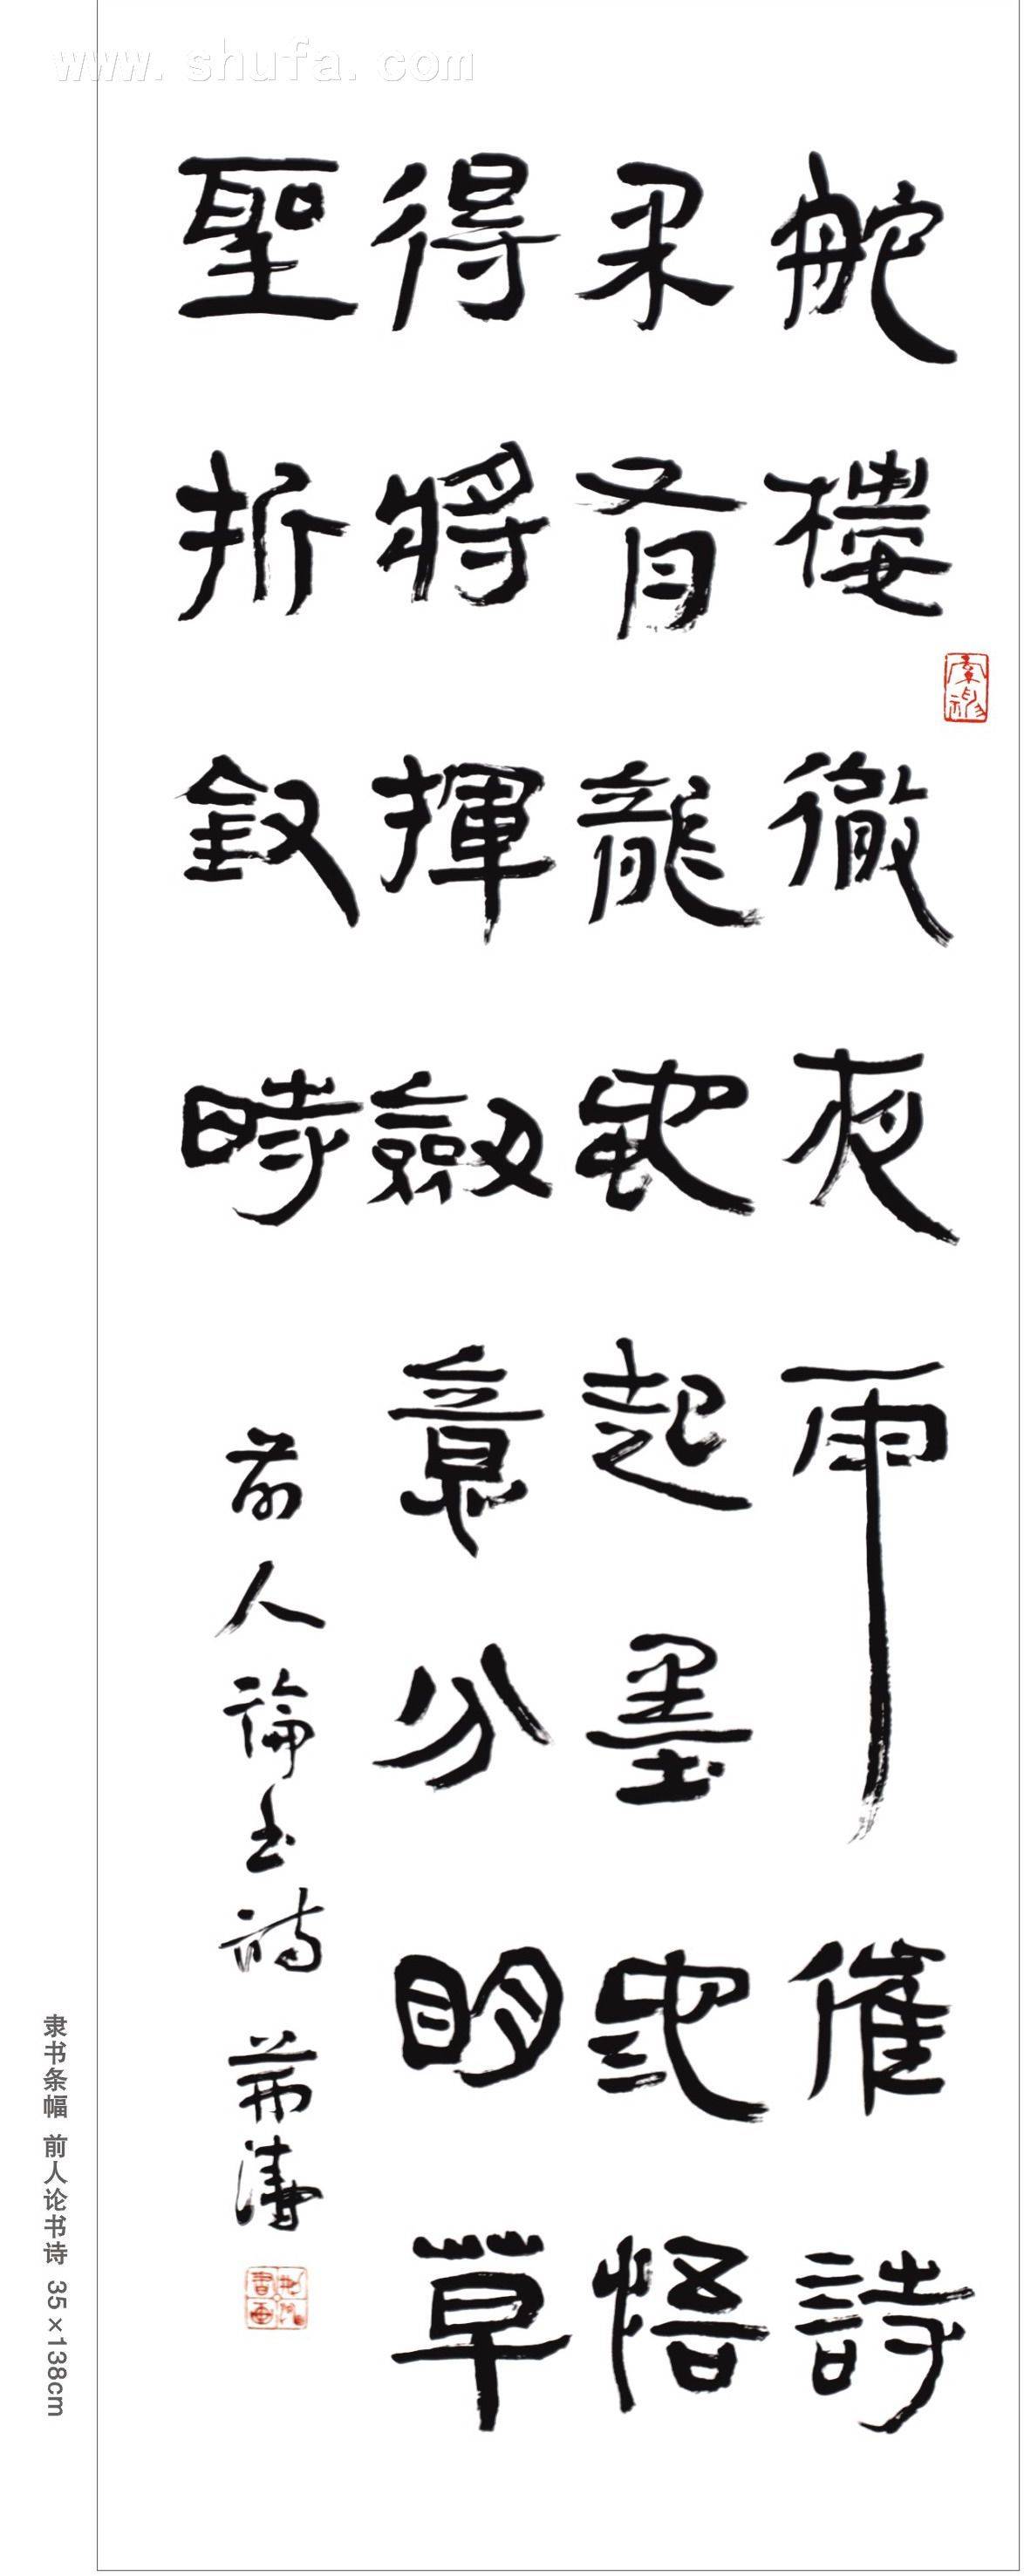 www.shufa.com
舵樓徹夜雨催詩
果有龍蛇起墨池悟
得將揮劍意分明草
聖折釵時
前人論書詩
隶书条幅 前人论书诗 35×138cm